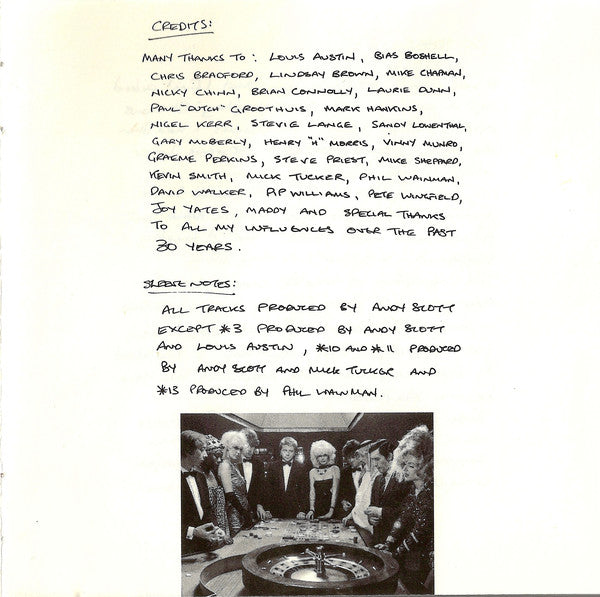 CREDITS:
MANY THANKS TO: LOUIS AUSTIN, BIAS BOSHELL,
CHRIS BRADFORD, LINDSAY BROWN, MIKE CHAPMAN,
NICKY CHINN, BRIAN CONNOLLY, LAURIE DUNN,
PAUL "DUTCH" GROOTHUIS, MARK HANKINS,
NIGEL KERR, STEVIE LANGE, SANDY LOWENTHAL,
GARY MOBERLY, HENRY "H" MORRIS, VINNY MUNRO,
GRAEME PERKINS, STEVE PRIEST, MIKE SHEPPARD,
KEVIN SMITH, MICK TUCKER, PHIL WAINMAN,
DAVID WALKER, PIP WILLIAMS, PETE WINGFIELD,
JOY YATES, MADDY AND SPECIAL THANKS
TO ALL MY INFLUENCES OVER THE PAST
30 YEARS.
SLEEVE NOTES:
ALL TRACKS PRODUCED BY ANDY SCOTT
EXCEPT *3 PRODUCED BY ANDY SCOTT
AND LOUIS AUSTIN, *10 AND *11 PRODUCED
BY ANDY SCOTT AND MICK TUCKER AND
*13 PRODUCED BY PHIL WAINMAN.